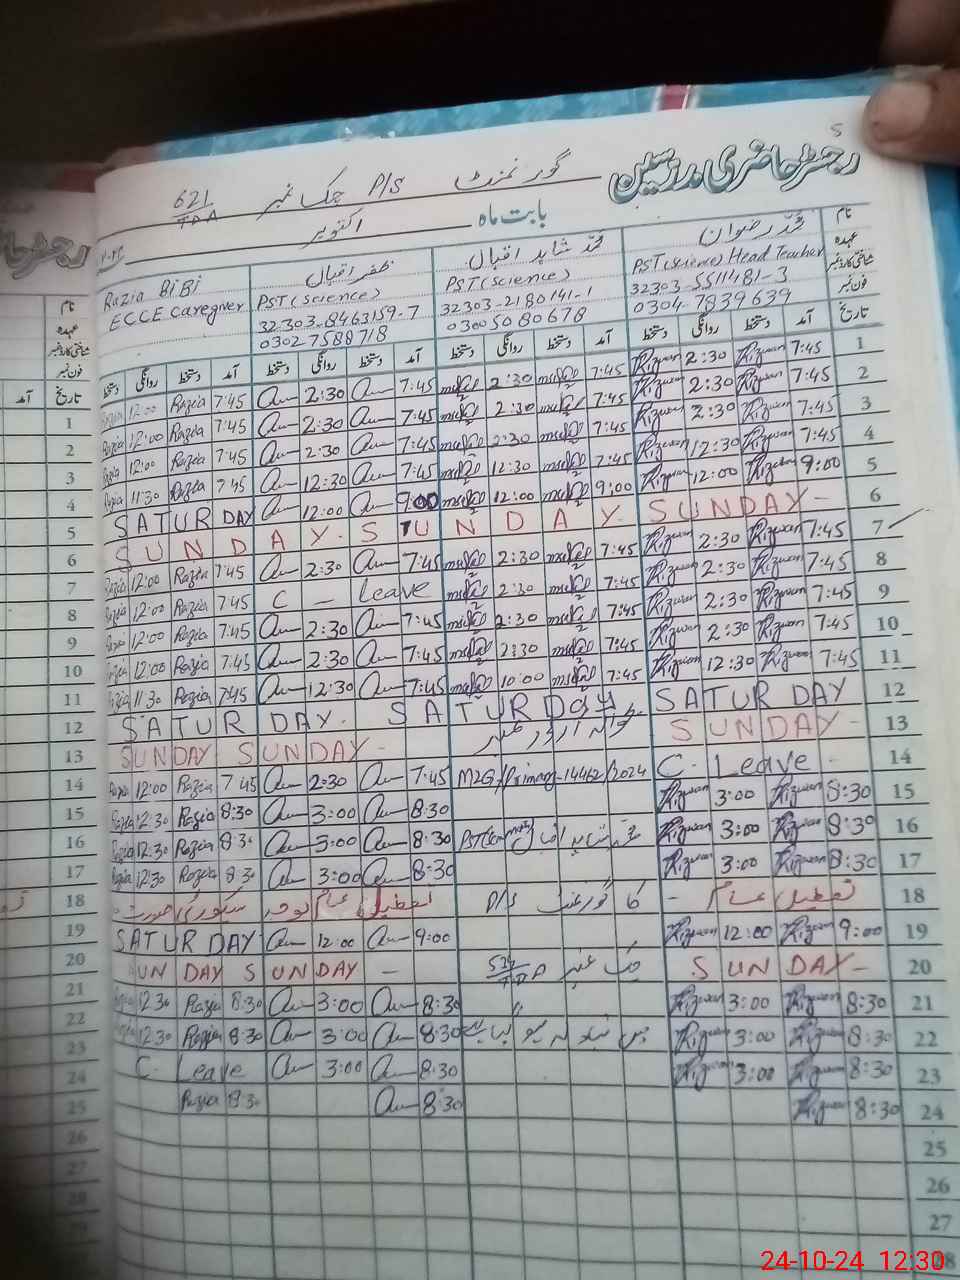 5
رجسٹر حاضری مدرسین
گورنمنٹ P/S چک نمبر 621/TDA
بابت ماہ اکتوبر
نام
عہدہ
شناختی کارڈ نمبر
فون نمبر
تاریخ
محمد رضوان
PST(Science) Head Teacher
32303-5511481-3
0304-7839639
محمد شاہد اقبال
PST(Science)
32303-2180141-1
03005080678
ظفر اقبال
PST(Science)
32303-8463159-7
03027588718
Razia BiBi
ECCE Caregiver
آمد دستخط روانگی دستخط آمد دستخط روانگی دستخط آمد دستخط روانگی دستخط آمد دستخط روانگی دستخط
1 7:45 Rizwan 2:30 Rizwan 7:45 2:30 7:45 2:30 7:45 Razia 12:00 Razia
2 7:45 Rizwan 2:30 Rizwan 7:45 2:30 7:45 2:30 7:45 Razia 12:00 Razia
3 7:45 Rizwan 2:30 Rizwan 7:45 2:30 7:45 2:30 7:45 Razia 12:00 Razia
4 7:45 Rizwan 12:30 Rizwan 7:45 12:30 7:45 12:30 7:45 Razia 11:30 Razia
5 9:00 Rizwan 12:00 Rizwan 9:00 12:00 9:00 12:00 SATURDAY
6 SUNDAY SUNDAY SUNDAY
7 7:45 Rizwan 2:30 Rizwan 7:45 2:30 7:45 2:30 7:45 Razia 12:00 Razia
8 7:45 Rizwan 2:30 Rizwan 7:45 2:30 C - Leave 7:45 Razia 12:00 Razia
9 7:45 Rizwan 2:30 Rizwan 7:45 2:30 7:45 2:30 7:45 Razia 12:00 Razia
10 7:45 Rizwan 2:30 Rizwan 7:45 2:30 7:45 2:30 7:45 Razia 12:00 Razia
11 7:45 Rizwan 12:30 Rizwan 7:45 10:00 7:45 12:30 7:45 Razia 11:30 Razia
12 SATURDAY SATURDAY SATURDAY
13 SUNDAY - حوالہ آرڈر نمبر SUNDAY - SUNDAY
14 C. Leave - M2G/Primary-14462/2024 7:45 2:30 7:45 Razia 12:00 Razia
15 8:30 Rizwan 3:00 Rizwan 8:30 3:00 8:30 Razia 12:30 Razia
16 8:30 Rizwan 3:00 Rizwan محمد شاہد اقبال 8:30 3:00 8:30 Razia 12:30 Razia
17 8:30 Rizwan 3:00 Rizwan 8:30 3:00 8:30 Razia 12:30 Razia
18 تعطیل عام - کا گورنمنٹ P/S تعطیل عام بوجہ سکیورٹی
19 9:00 Rizwan 12:00 Rizwan 9:00 12:00 SATURDAY
20 SUNDAY - چک نمبر SUNDAY - SUNDAY
21 8:30 Rizwan 3:00 Rizwan 8:30 3:00 8:30 Razia 12:30
22 8:30 Rizwan 3:00 Rizwan میں تبادلہ ہو گیا ہے 8:30 3:00 8:30 Razia 12:30
23 8:30 Rizwan 3:00 Rizwan 8:30 3:00 C. Leave
24 8:30 Rizwan 8:30 8:30 Razia
25
26
27
28
نام
عہدہ
شناختی کارڈ نمبر
فون نمبر
تاریخ
آمد
1
2
3
4
5
6
7
8
9
10
11
12
13
14
15
16
17
18
19
20
21
22
23
24
25
26
27
28
24-10-24 12:30